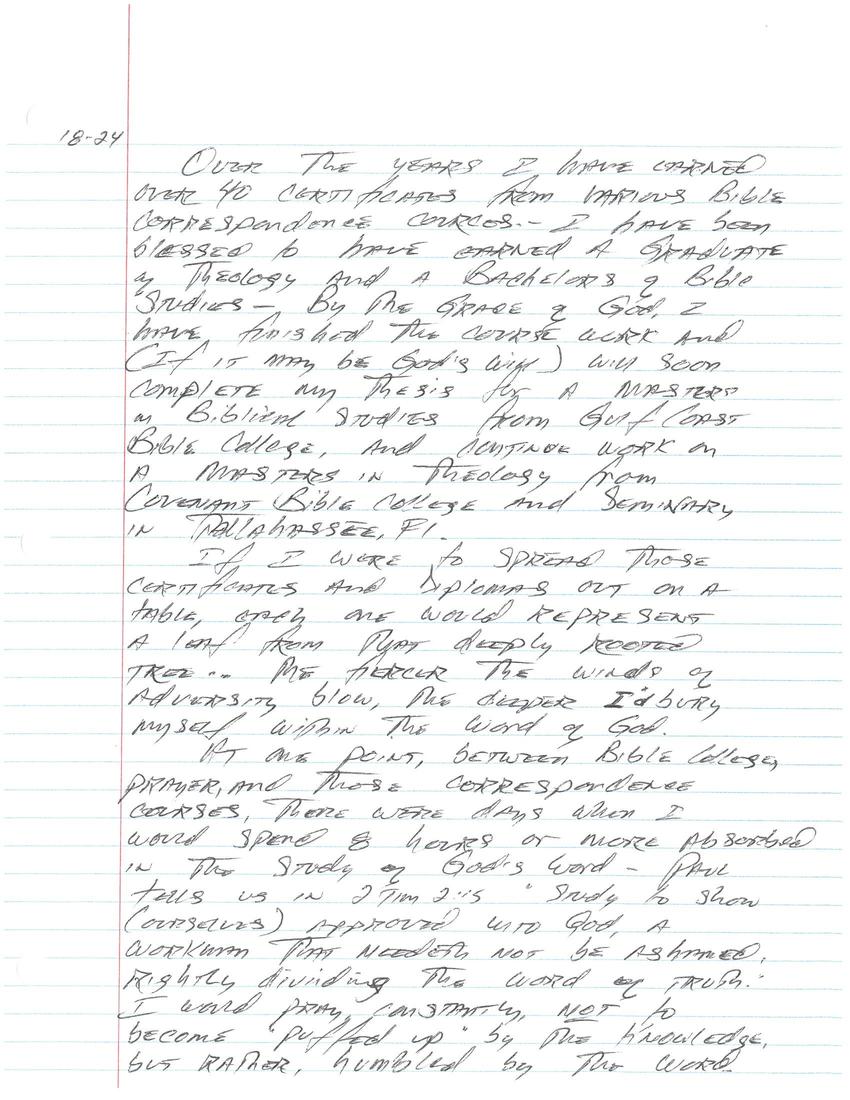 18-24
Over the years I have earned
over 40 certificates from various Bible
correspondence cources.- I have been
blessed to have earned a Graduate
of Theology and a Bachelors of Bible
Studies - By the Grace of God, I
have finished the course work and
(If it may be God's will) will soon
complete my thesis for a Masters
in Biblical Studies from Gulf Coast
Bible College, and continue work on
a Masters in Theology from
Covenant Bible College and Seminary
in Tallahassee, Fl.
If I were to spread those
certificates and diplomas out on a
table, each one would represent
a leaf from that deeply rooted
tree... The fiercer the winds of
adversity blow, the deeper I'd bury
myself within the Word of God.
At one point, between Bible College,
prayer, and those correspondence
courses, there were days when I
would spend 8 hours or more absorbed
in the study of God's Word - Paul
tells us in 2 Tim 2:15 "Study to show
(ourselves) approved unto God, a
workman that needeth not be ashamed,
rightly dividing the word of truth."
I would pray, constantly, NOT to
become "puffed up" by the knowledge,
but rather, humbled by the Word.